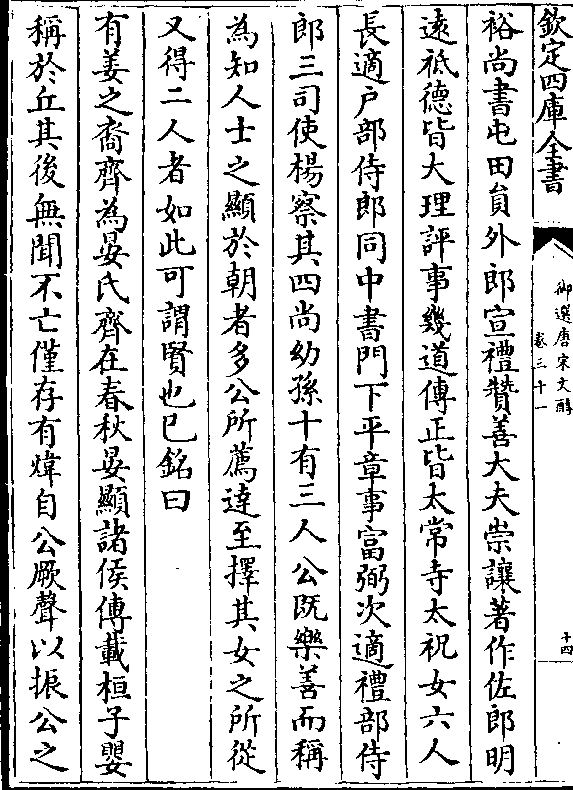 欽定四庫全書
御選唐宋文醇
卷三十一
十四
裕尚書屯田貟外郎宣禮贊善大夫崇讓著作佐郎明
逺祗德皆大理評事幾道傳正皆太常寺太祝女六人
長適户部侍郎同中書門下平章事富弼次適禮部侍
郎三司使楊察其四尚幼孫十有三人公既樂善而稱
為知人士之顯於朝者多公所薦逹至擇其女之所從
又得二人者如此可謂賢也已銘曰
有姜之裔齊為晏氏齊在春秋晏顯諸侯傳載桓子嬰
稱於丘其後無聞不亡僅存有煒自公厥聲以振公之